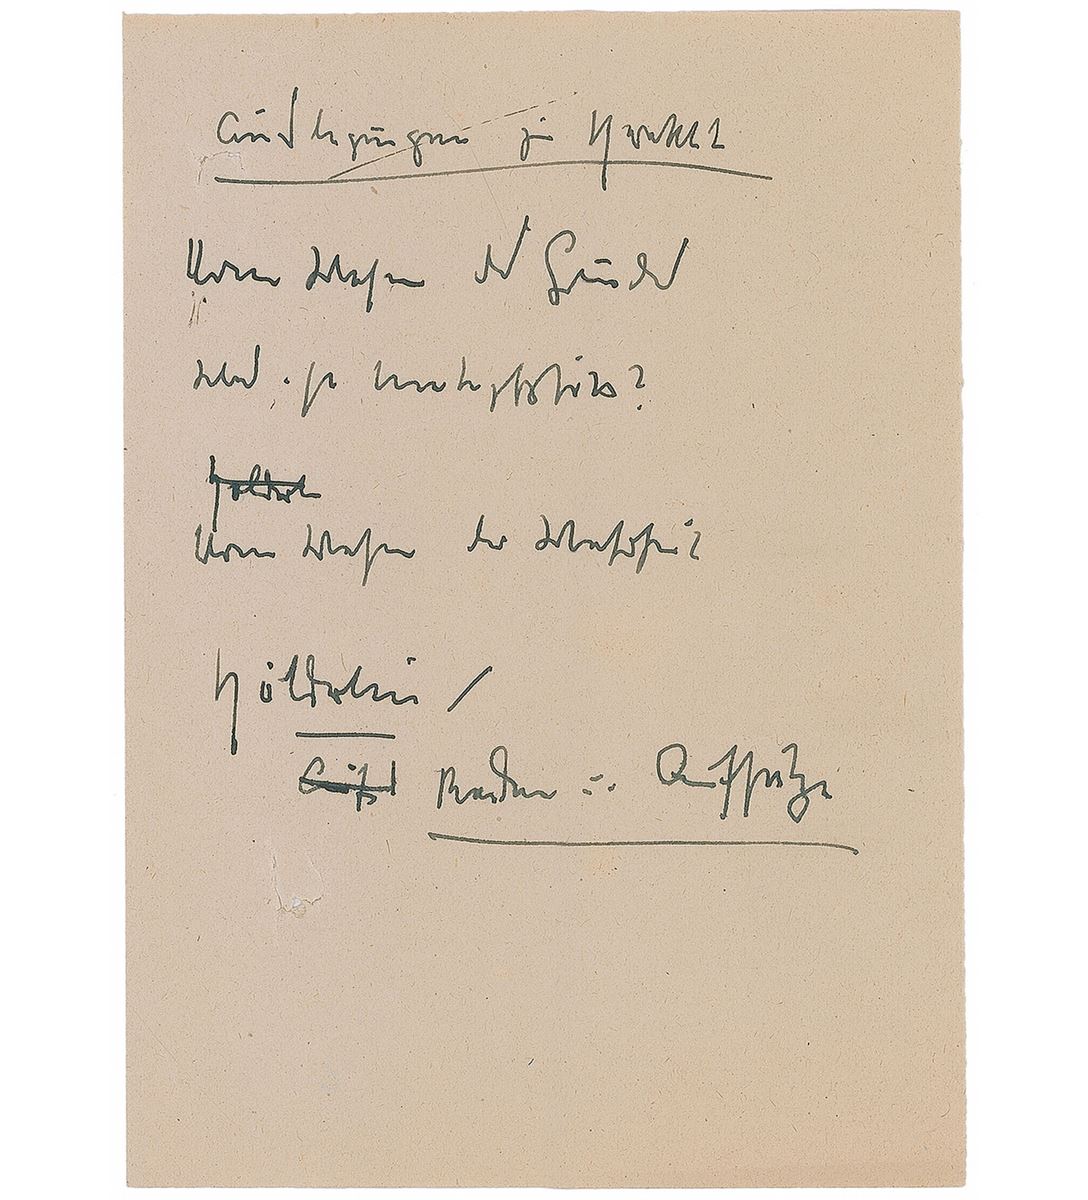 Auslegungen zu Heraklit
Vom Wesen des Grundes
Was ist Metaphysik?
Hölderl
Vom Wesen der Wahrheit
Hölderlin /
Reden u. Aufsätze